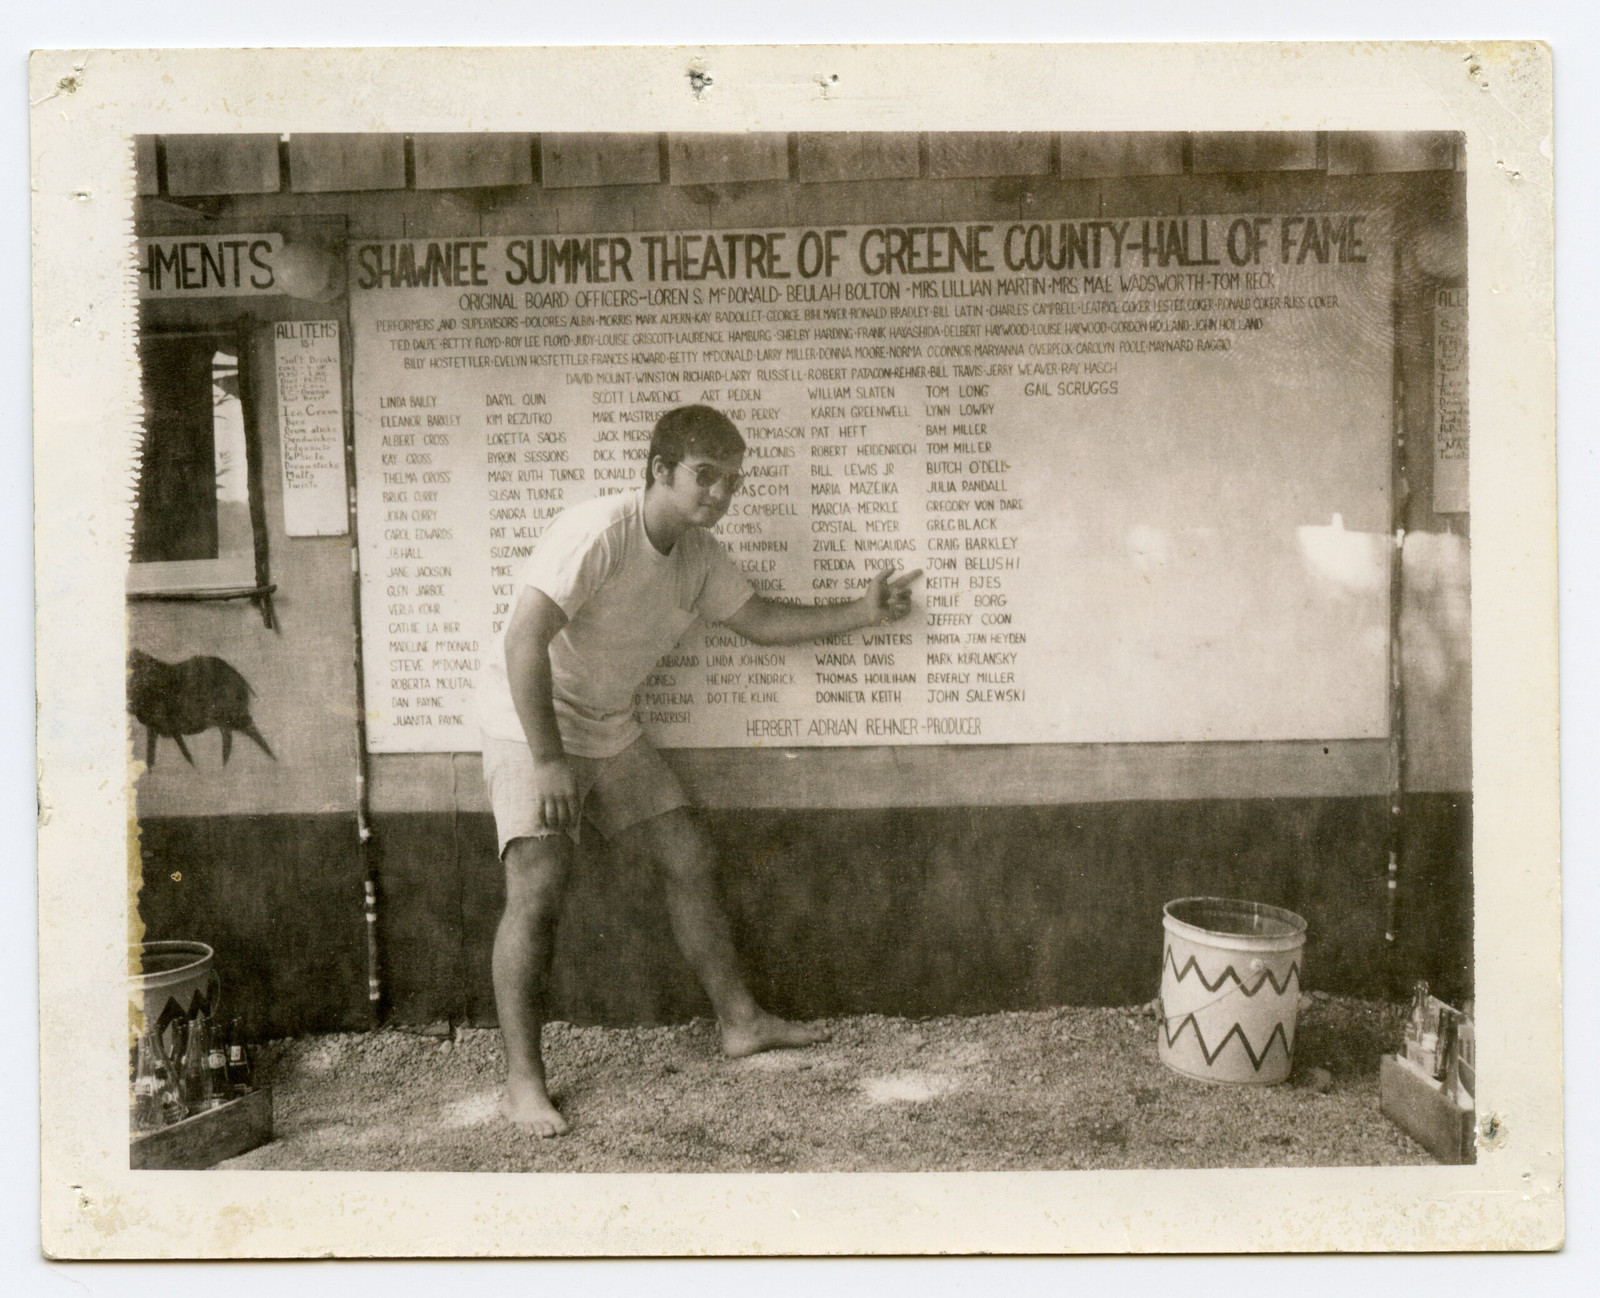 HMENTS
SHAWNEE SUMMER THEATRE OF GREENE COUNTY-HALL OF FAME
ORIGINAL BOARD OFFICERS-LOREN S. McDONALD-BEULAH BOLTON-MRS. LILLIAN MARTIN-MRS. MAE WADSWORTH-TOM RECK
PERFORMERS AND SUPERVISORS-DOLORES ALBIN-MORRIS MARK ALPERN-KAY BADOLLET-GEORGE BIHLMAYER-RONALD BRADLEY-BILL LATIN-CHARLES CAMPBELL-LEATRICE COKER-LESTER COKER-RONALD COKER-RUSS COKER
TED DALPE-BETTY FLOYD-ROY LEE FLOYD-JUDY-LOUISE GRISCOTT-LAURENCE HAMBURG-SHELBY HARDING-FRANK HAYASHIDA-DELBERT HAYWOOD-LOUISE HAYWOOD-GORDON HOLLAND-JOHN HOLLAND
BILLY HOSTETTLER-EVELYN HOSTETTLER-FRANCES HOWARD-BETTY McDONALD-LARRY MILLER-DONNA MOORE-NORMA O'CONNOR-MARYANNA OVERPECK-CAROLYN POOLE-MAYNARD RAGGIO
DAVID MOUNT-WINSTON RICHARD-LARRY RUSSELL-ROBERT PATACON-REHNER-BILL TRAVIS-JERRY WEAVER-RAY HASCH
LINDA BAILEY
ELEANOR BARKLEY
ALBERT CROSS
KAY CROSS
THELMA CROSS
BRUCE CURRY
JOHN CURRY
CAROL EDWARDS
J.B. HALL
JANE JACKSON
GLEN JARBOE
VERLA KOHR
CATHIE LA BIER
MADELINE McDONALD
STEVE McDONALD
ROBERTA MOUTAL
DAN PAYNE
JUANITA PAYNE
DARYL QUIN
KIM REZUTKO
LORETTA SACHS
BYRON SESSIONS
MARY RUTH TURNER
SUSAN TURNER
SANDRA ULAN
PAT WELL
SUZANN
MIKE
VICT
JO
DE
SCOTT LAWRENCE
MARIE MASTRUS
JACK MERSK
DICK MORR
DONALD O
JUDY PE
ENBRAND
JONES
D MATHENA
C PARRISH
ART PEDEN
MOND PERRY
THOMASON
OMULONIS
WRAIGHT
BASCOM
ES CAMPBELL
ON COMBS
RK HENDREN
EGLER
DRIDGE
DONALD
LINDA JOHNSON
HENRY KENDRICK
DOTTIE KLINE
WILLIAM SLATEN
KAREN GREENWELL
PAT HEFT
ROBERT HEIDENREICH
BILL LEWIS JR
MARIA MAZEIKA
MARCIA MERKLE
CRYSTAL MEYER
ZIVILE NUMGAUDAS
FREDDA PROPES
GARY SEAM
ROBERT
LYNDEE WINTERS
WANDA DAVIS
THOMAS HOULIHAN
DONNIETA KEITH
TOM LONG
LYNN LOWRY
BAM MILLER
TOM MILLER
BUTCH O'DELL
JULIA RANDALL
GREGORY VON DARE
GREG BLACK
CRAIG BARKLEY
JOHN BELUSHI
KEITH BJES
EMILIE BORG
JEFFERY COON
MARITA JEAN HEYDEN
MARK KURLANSKY
BEVERLY MILLER
JOHN SALEWSKI
GAIL SCRUGGS
HERBERT ADRIAN REHNER-PRODUCER
ALL ITEMS
15¢
Soft Drinks
Ice Cream
Bars
Drum sticks
Sandwiches
Fudgesicle
PoPsicle
Dreamsicles
Malts
Twists
ALL